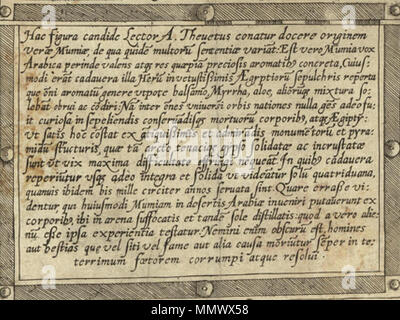 Hac figura candide Lector A. Thevetus conatur docere originem
veræ Mumiæ, de qua quidē multorū sententiæ variāt. Æst vero Mumia vox
Arabica perinde valens atq; res quæpiā preciosis aromatib⁹ concreta, Cuius⸗
modi erāt cadavera illa Herū in vetustissimis Ægyptiorū sepulchris reperta
que ōni aromatū genere vtpote balsamo, Myrrha, aloe, aliōrūq; mixtura so⸗
lebāt obrui ac cōdiri: Nā inter ōnes vniversi orbis nationes nulla gēs adeo fu⸗
it curiosa in sepeliendis conservādisq; mortuorū corporib⁹, atq; Ægipty:
vt satis hoc cōstat ex ātiquissimis et admirādis monumētorū et pyra⸗
midū structuris, quæ tā arcte tenaciq; gypso solidatæ ac incrustatæ
sunt vt vix maxima difficultate effrīgi nequeāt īn quib⁹ cadavera
reperiūtur vsq; adeo integra et solida vt videātur solū quatriduana,
quanuis ibidem bis mille circiter annos servata sint. Quare errasse vi⸗
dentur qui huiusmodi Mumiam in desertis Arabiæ inveniri putaverunt ex
corporib⁹ ibi in arena suffocatis et tandē sole distillatis: quod a vero alie⸗
nū esse ipsa experientia testatur. Nemini enim obscurū est, homines
aut bestias que vel siti vel fame aut alia causa moriūtur sēper in te⸗
terrimum fœtorem corrumpi atque resolvi.
alamy
Image ID: MMWX58
www.alamy.com